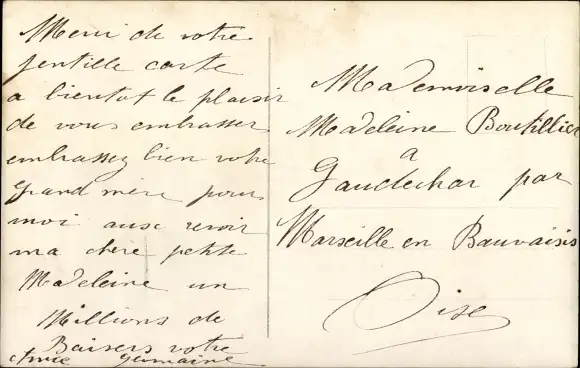 Merci de votre
gentille carte
a bientot le plaisir
de vous embrasser
embrassez bien votre
Grand mère pour
moi aurevoir
ma chère petite
Madeleine un
Millions de
Baisers votre
amie Germaine
Mademoiselle
Madeleine Boutillier
a
Gaudechar par
Marseille en Bauvaisis
Oise